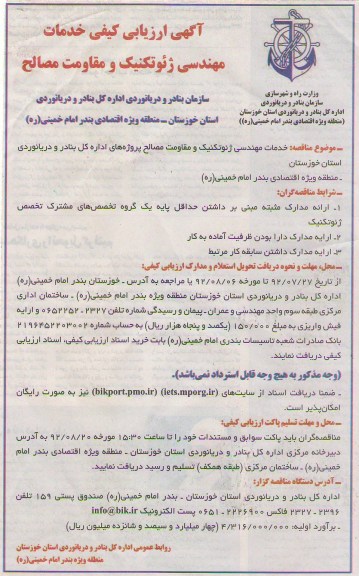 آگهی ارزیابی کیفی خدمات
مهندسی ژئوتکنیک و مقاومت مصالح
وزارت راه و شهرسازی
سازمان بنادر و دریانوردی
اداره کل بنادر و دریانوردی استان خوزستان
(منطقه ویژه اقتصادی بندر امام خمینی(ره))
سازمان بنادر و دریانوردی اداره کل بنادر و دریانوردی
استان خوزستان ــ منطقه ویژه اقتصادی بندر امام خمینی(ره)
ــ موضوع مناقصه: خدمات مهندسی ژئوتکنیک و مقاومت مصالح پروژه‌های اداره کل بنادر و دریانوردی
استان خوزستان
ـ منطقه ویژه اقتصادی بندر امام خمینی(ره)
ــ شرایط مناقصه‌گران:
۱ـ ارائه مدارک مثبته مبنی بر داشتن حداقل پایه یک گروه تخصص‌های مشترک تخصص
ژئوتکنیک
۲ـ ارایه مدارک دارا بودن ظرفیت آماده به کار
۳ـ ارایه مدارک داشتن سابقه کار مرتبط
ــ محل، مهلت و نحوه دریافت تحویل استعلام و مدارک ارزیابی کیفی:
از تاریخ ۹۲/۰۷/۲۷ تا مورخه ۹۲/۰۸/۰۶ با مراجعه به آدرس ـ خوزستان بندر امام خمینی(ره)
اداره کل بنادر و دریانوردی استان خوزستان منطقه ویژه بندر امام خمینی(ره) ـ ساختمان اداری
مرکزی طبقه سوم واحد مهندسی و عمران ـ پیمان و رسیدگی شماره تلفن ۲۳۲۷ ـ ۰۶۵۲۲۵۲ و ارایه
فیش واریزی به مبلغ ۱۵۰/۰۰۰ (یکصد و پنجاه هزار ریال) به حساب شماره ۲۱۹۶۴۵۲۲۰۳۰۰۲
بانک صادرات شعبه تاسیسات بندری امام خمینی(ره) بابت خرید اسناد ارزیابی کیفی، اسناد ارزیابی
کیفی دریافت نمایند.
(وجه مذکور به هیچ وجه قابل استرداد نمی‌باشد).
ـ ضمنا دریافت اسناد از سایت‌های (iets.mporg.ir) (bikport.pmo.ir) نیز به صورت رایگان
امکان‌پذیر است.
ــ محل و مهلت تسلیم پاکت ارزیابی کیفی:
مناقصه‌گران باید پاکت سوابق و مستندات خود را تا ساعت ۱۵:۳۰ مورخه ۹۲/۰۸/۲۰ به آدرس
دبیرخانه مرکزی اداره کل بنادر و دریانوردی استان خوزستان ـ منطقه ویژه اقتصادی بندر امام
خمینی(ره) ـ ساختمان مرکزی (طبقه همکف) تسلیم و رسید دریافت نمایند.
ــ آدرس دستگاه مناقصه گزار:
اداره کل بنادر و دریانوردی استان خوزستان ـ بندر امام خمینی(ره) صندوق پستی ۱۵۹ تلفن
۲۳۹۶ ـ ۲۳۲۷ فاکس ۲۲۲۶۹۰۰ ـ ۰۶۵۱ پست الکترونیک info@bik.ir
ـ برآورد اولیه: ۴/۳۱۶/۰۰۰/۰۰۰ (چهار میلیارد و سیصد و شانزده میلیون ریال)
روابط عمومی اداره کل بنادر و دریانوردی استان خوزستان
منطقه ویژه اقتصادی بندر امام خمینی(ره)